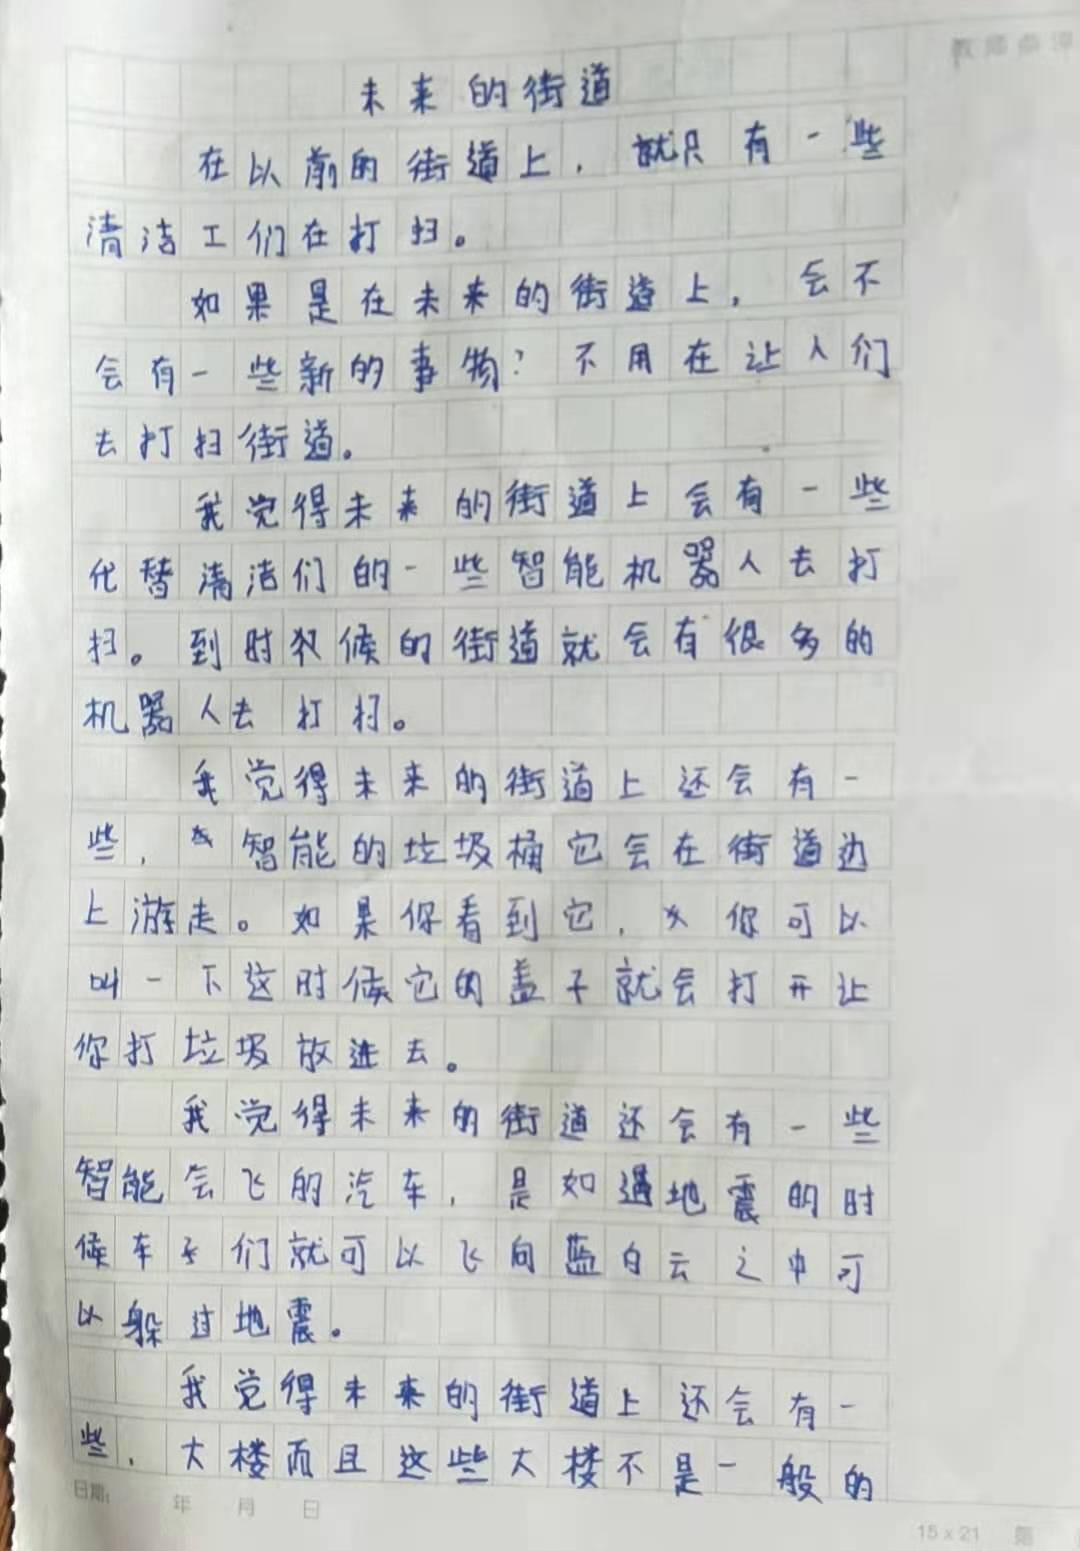 教师点评
未来的街道
在以前的街道上，就只有一些
清洁工们在打扫。
如果是在未来的街道上，会不
会有一些新的事物？不用在让人们
去打扫街道。
我觉得未来的街道上会有一些
代替清洁们的一些智能机器人去打
扫。到时候的街道就会有很多的
机器人去打扫。
我觉得未来的街道上还会有一
些，智能的垃圾桶它会在街道边
上游走。如果你看到它，你可以
叫一下这时候它的盖子就会打开让
你打垃圾放进去。
我觉得未来的街道还会有一些
智能会飞的汽车，是如遇地震的时
候车子们就可以飞向蓝白云之中可
以躲过地震。
我觉得未来的街道上还会有一
些，大楼而且这些大楼不是一般的
日期： 年 月 日
15×21 第